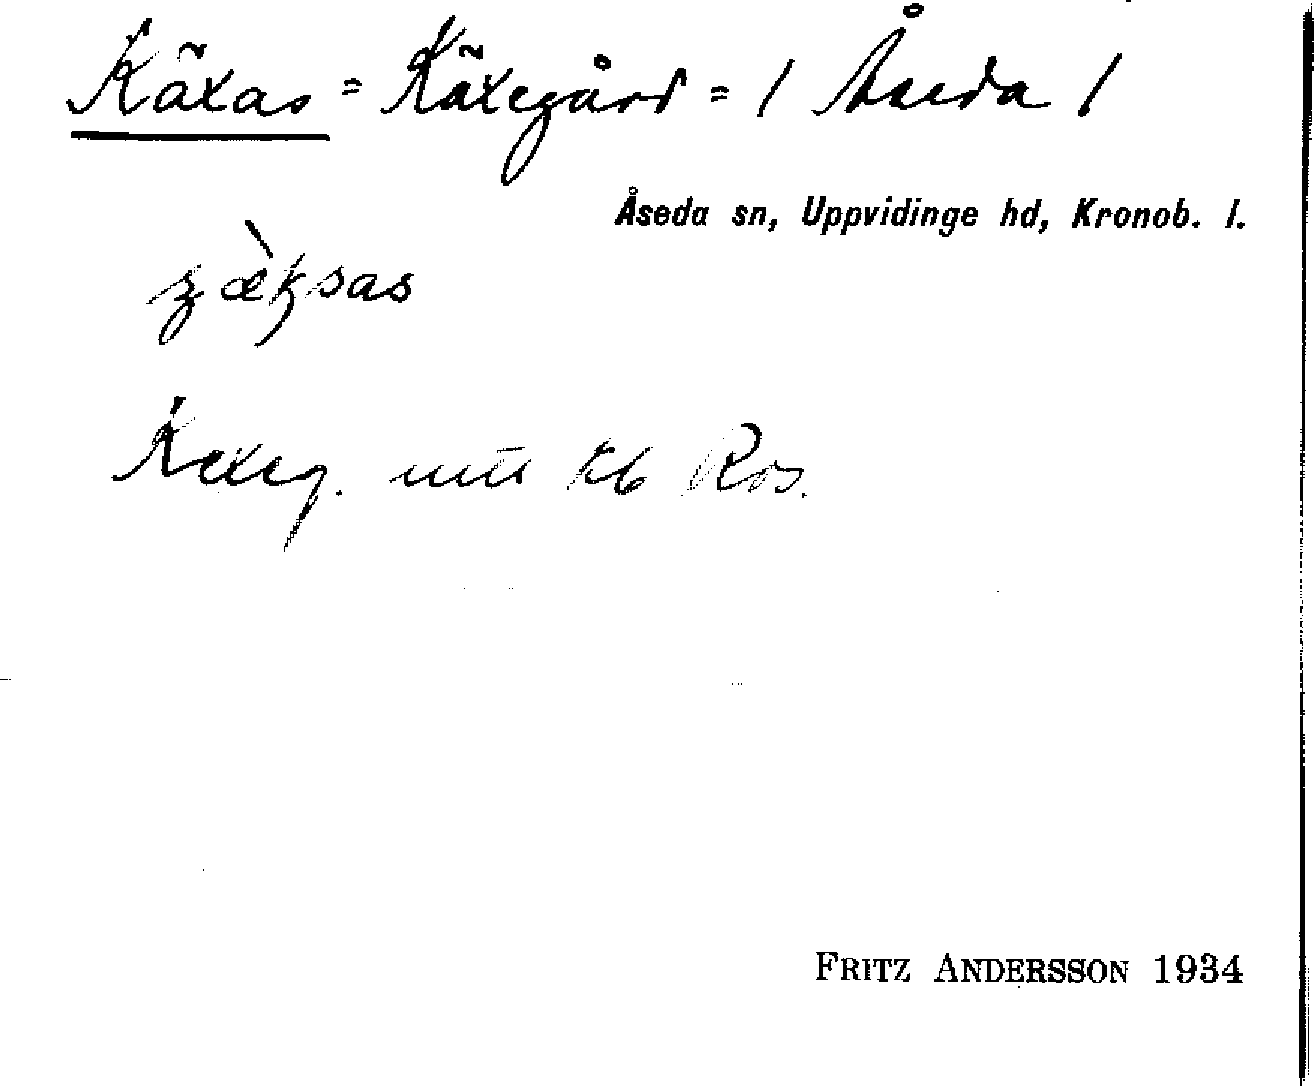 Käxas = Käxegård = / Åseda /
Åseda sn, Uppvidinge hd, Kronob. l.
Kexeg. utt kb Ros.
FRITZ ANDERSSON 1934